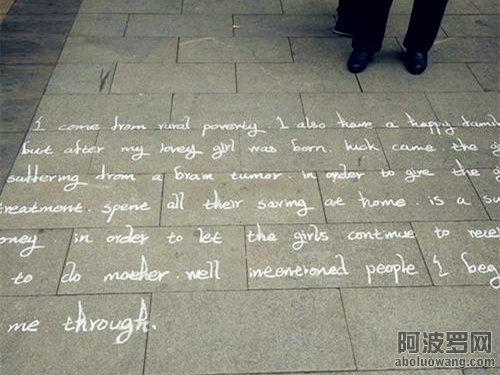 I come from rural poverty I also have a happy famil
but after my lovey girl was born. luck came the gi
suffering drom a bram tumor. in order to give the g
treatment. spent all their saving at home. is a su
oney. in order to let the girls continue to rece
to do mother. well intentioned people I beg
me through.
阿波罗网
aboluowang.com